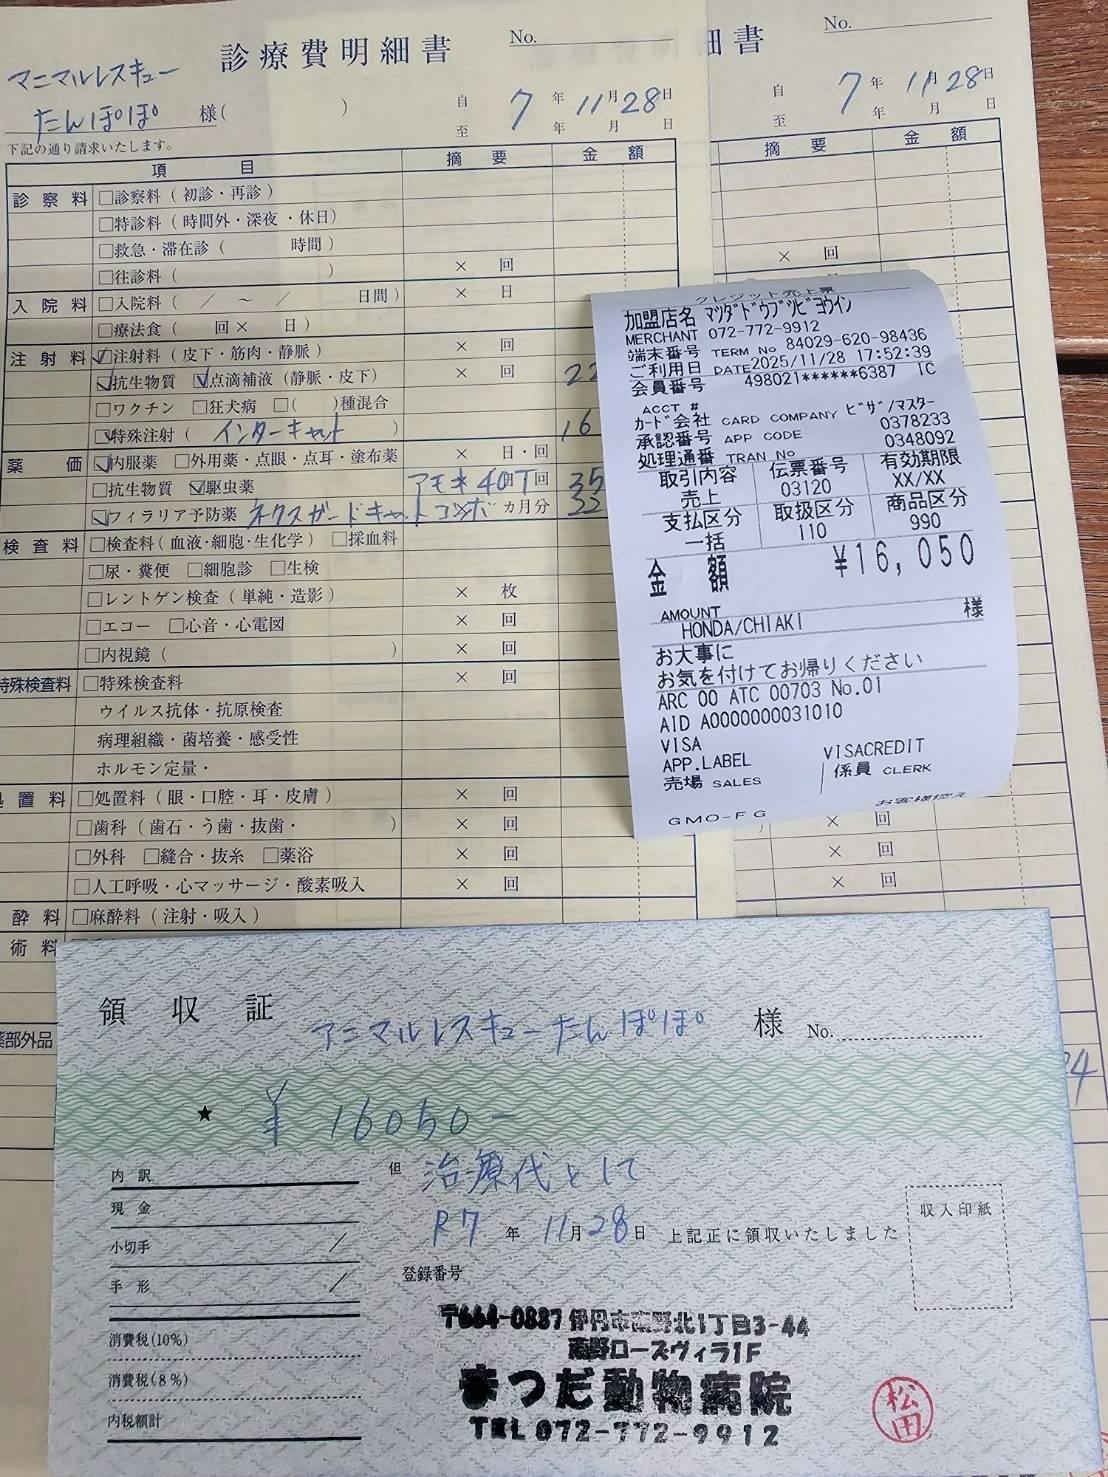 診療費明細書
No.
マニマルレスキュー
たんぽぽ 様( )
自 7 年 11 月 28 日
至 年 月 日
下記の通り請求いたします。
項 目 摘 要 金 額
診 察 料 □診察料 ( 初診・再診 )
□特診料 ( 時間外・深夜・休日)
□救急・滞在診 ( 時間 )
□往診料 ( ) × 回
入 院 料 □入院料 ( / ~ / 日間 ) × 日
□療法食 ( 回 × 日 )
注 射 料 ☑注射料 ( 皮下・筋肉・静脈 ) × 回
☑抗生物質 ☑点滴補液 (静脈・皮下) × 回 22
□ワクチン □狂犬病 □( )種混合
☑特殊注射 ( インターキャット ) 16
薬 価 ☑内服薬 □外用薬・点眼・点耳・塗布薬 × 日・回
□抗生物質 ☑駆虫薬 アモキ 40T 回 35
☑フィラリア予防薬 ネクスガードキャットコンボ カ月分 33
検 査 料 □検査料 ( 血液・細胞・生化学 ) □採血料
□尿・糞便 □細胞診 □生検
□レントゲン検査 ( 単純・造影 ) × 枚
□エコー □心音・心電図 × 回
□内視鏡 ( ) × 回
特殊検査料 □特殊検査料 × 回
ウイルス抗体・抗原検査
病理組織・菌培養・感受性
ホルモン定量・
処 置 料 □処置料 ( 眼・口腔・耳・皮膚 ) × 回
□歯科 ( 歯石・う歯・抜歯・ ) × 回
□外科 □縫合・抜糸 □薬浴 × 回
□人工呼吸・心マッサージ・酸素吸入 × 回
酔 料 □麻酔料 ( 注射・吸入 )
術 料
薬部外品
細書
No.
自 7 年 11 月 28 日
至 年 月 日
摘 要 金 額
× 回
) × 回
× 回
× 回
24
クレジット売上票
加盟店名 マツダドウブツビョウイン
MERCHANT 072-772-9912
端末番号 TERM No 84029-620-98436
ご利用日 DATE 2025/11/28 17:52:39
会員番号 498021******6387 IC
ACCT #
カード会社 CARD COMPANY ビザ/マスター
承認番号 APP CODE 0378233
処理通番 TRAN No 0348092
取引内容 伝票番号 有効期限
売上 03120 XX/XX
支払区分 取扱区分 商品区分
一括 110 990
金 額 ¥16,050
AMOUNT
HONDA/CHIAKI 様
お大事に
お気を付けてお帰りください
ARC 00 ATC 00703 No.01
AID A0000000031010
VISA VISACREDIT
APP.LABEL
売場 SALES 係員 CLERK
お客様控え
GMO-FG
領 収 証
アニマルレスキューたんぽぽ 様 No.
★ ¥ 16050-
内 訳
現 金
小切手 /
手 形 /
消費税(10%)
消費税(8%)
内税額計
但 治療代として
R7 年 11 月 28 日 上記正に領収いたしました
登録番号
収入印紙
〒664-0887 伊丹市南野北1丁目3-44
南野ローズヴィラ1F
まつだ動物病院
TEL 072-772-9912
松田